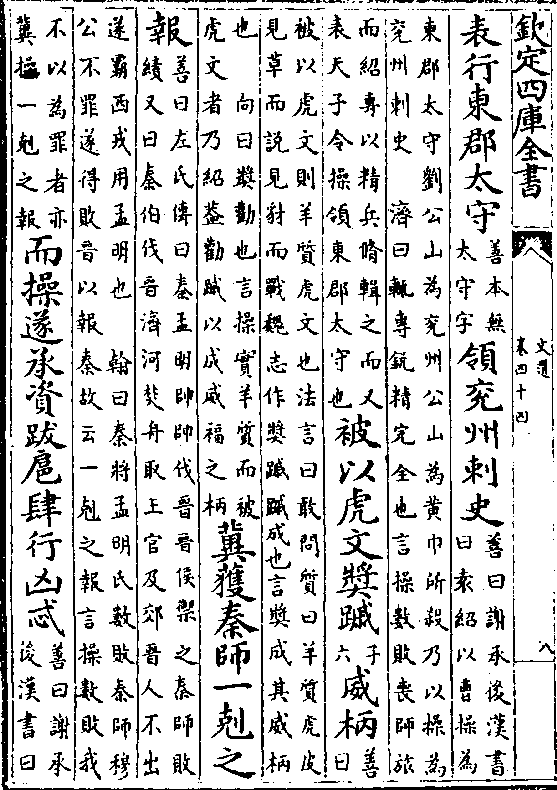 欽定四庫全書
文選
卷四十四
八
表行東郡太守善本無太守字領兖州刺史善曰謝承後漢書曰袁紹以曹操為
東郡太守劉公山為兖州公山為黄巾所殺乃以操為
兖州刺史　濟曰輒專鋭精完全也言操數敗喪師旅
而紹專以精兵脩輯之而又表天子令操領東郡太守也被以虎文奬䠞子六威柄善曰
被以虎文則羊質虎文也法言曰敢問質曰羊質虎皮
見草而説見豺而戰魏志作奬䠞䠞成也言奬成其威柄
也　向曰奬勸也言操實羊質而被
虎文者乃紹葢勸䠞以成威福之柄冀獲秦師一剋之
報善曰左氏傳曰秦孟明帥師伐晉晉侯禦之秦師敗
績又曰秦伯伐晉濟河焚舟取王官及郊晉人不出
遂霸西戎用孟明也　翰曰秦將孟明氏數敗秦師穆
公不罪遂得敗晉以報秦故云一剋之報言操數敗我
不以為罪者亦冀操一剋之報而操遂承資跋扈肆行凶忒善曰謝承後漢書曰